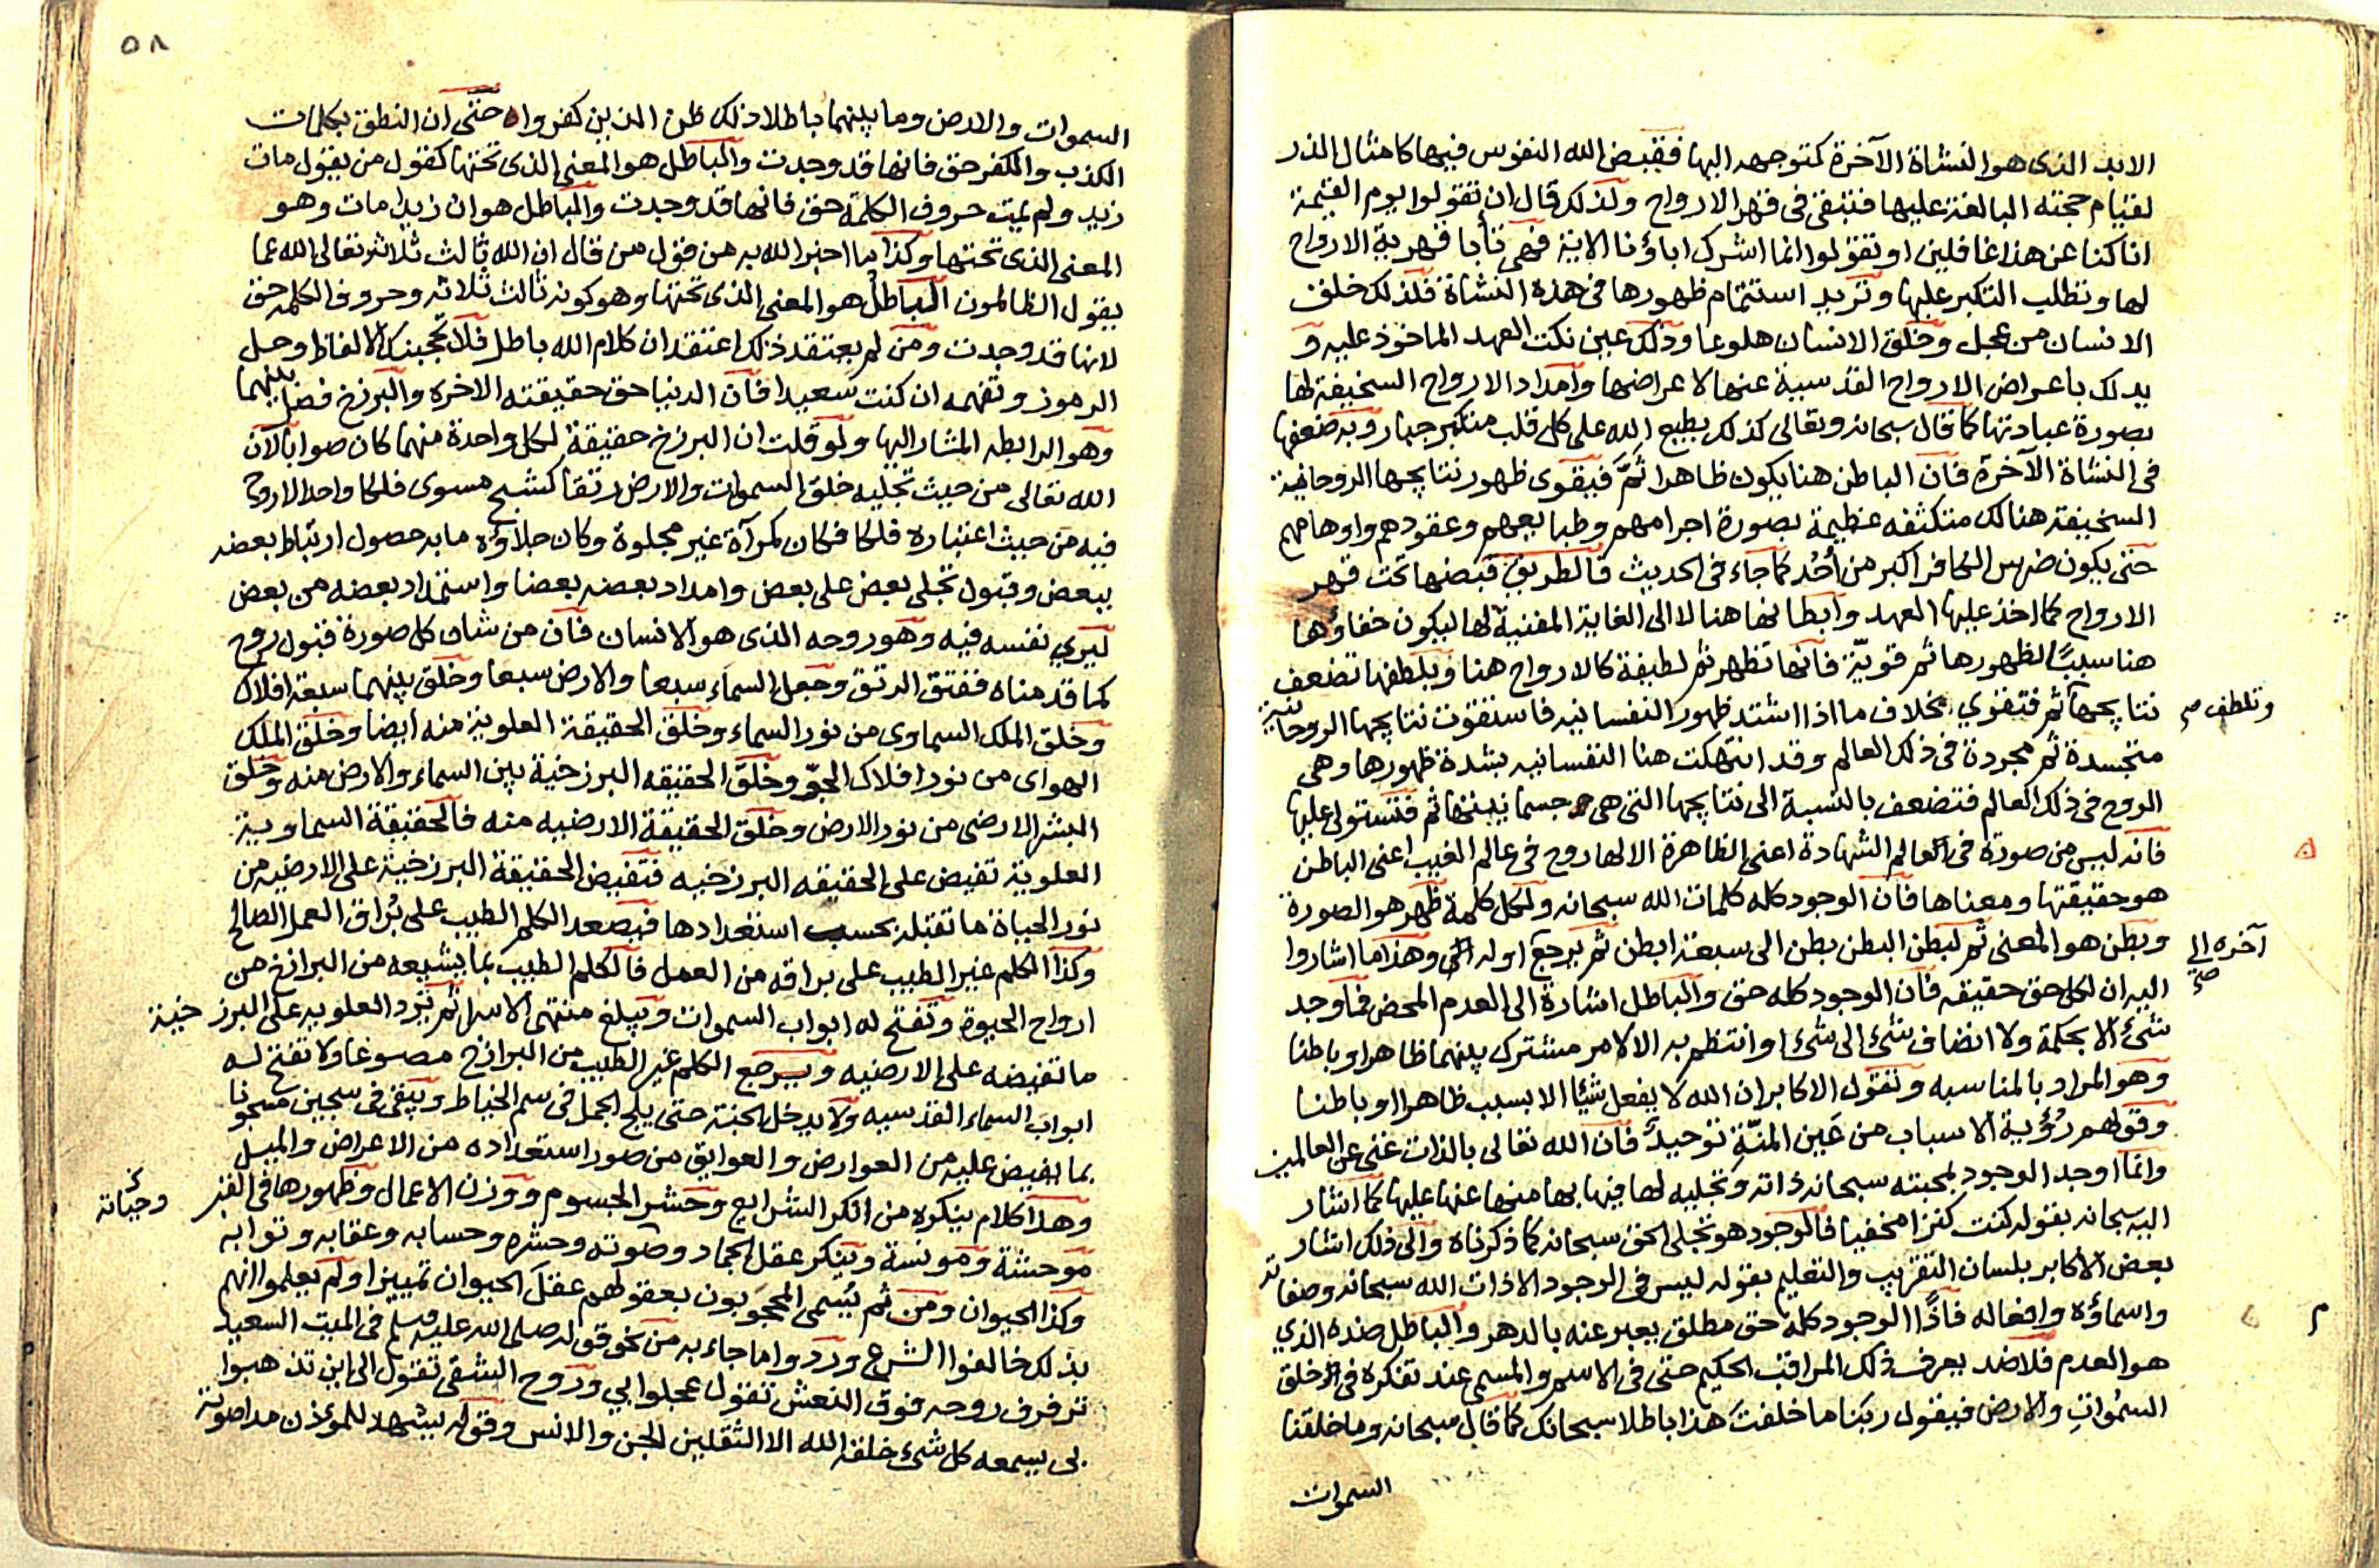 الابد الذى هو النشاة الآخرة كتوجهه اليها فقبض الله النفوس فيها كامثال الذر
لقيام حجته البالغة عليها فتبقى فى قهر الارواح ولذلك قال ان تقولوا يوم القيمة
انا كنا عن هذا غافلين او تقولوا انما اشرك اباؤنا الاية فهى تأبا قهرية الارواح
لها وتطلب التكبر عليها وتريد استتمام ظهورها فى هذه النشاة فلذلك خلق
الانسان من عجل وخلق الانسان هلوعا وذلك عين نكث العهد الماخوذ عليه و
بدلك باعراض الارواح القدسية عنها لاعراضها وامداد الارواح السخيفة لها
بصورة عبادتها كما قال سبحانه وتعالى كذلك يطبع الله على كل قلب متكبر جبار وبه ضعفها
فى النشاة الآخرة فان الباطن هنا يكون ظاهرا ثَمَّ فيقوى ظهور نتايجها الروحانية
السخيفة هنالك متكثفه عظيمة بصورة اجرامهم وطبايعهم وعقودهم واوهامهم
حتى يكون ضرس الكافر اكبر من أُحُد كما جاء فى الحديث فالطريق قبضها تحت قهر
الارواح كما اخذ عليها العهد وابطانها هنا لا الى الغاية المفنية لها ليكون خفاؤها
هنا سببًا لظهورها ثم قويّة فانها تظهر ثم لطيفة كالارواح هنا وبلطفها تضعف
نتايجها ثم فتقوي بخلاف ما اذا اشتد ظهور النفسانيه فاستقوت نتايجها الروحانية
وتلطف صح
متجسدة ثم مجردة فى ذلك العالم وقد انتهكت هنا النفسانيه بشدة ظهورها وهى
الروح فى ذلك العالم فتضعف بالنسبة الى نتايجها التى هى جسمانيتها ثم فتستولى عليها
فانه ليس من صورة فى العالم الشهادة اعنى الظاهرة الا لها روح فى عالم الغيب اعنى الباطن
هو حقيقتها ومعناها فان الوجود كله كلمات الله سبحانه ولكل كلمة ظهر هو الصورة
وبطن هو المعنى ثم لبطن البطن بطن الى سبعة ابطن ثم يرجع اوله الى وهذا ما اشاروا
آخره الى صح
اليه ان لكل حق حقيقه فان الوجود كله حق والباطل اشارة الى العدم المحض فما وجد
شئ الا بحكمة ولا انضاف شئ الى شئ او انتظم به الا لامر مشترك بينهما ظاهرا وباطنا
وهو المراد بالمناسبه وتقول الاكابر ان الله لا يفعل شيًا الا بسبب ظاهرا او باطنا
وقولهم رؤية الاسباب من عين المنّة توحيدٌ فان الله تعالى بالذات غنى عن العالمين
وانما اوجد الوجود لمحبته سبحانه ذاته وتجليه لها فيها بها منها عنها عليها كما اشار
اليه سبحانه بقوله كنت كنزا مخفيا فالوجود هو تجلى الحق سبحانه كما ذكرناه والى ذلك اشار
بعض الاكابر بلسان التقريب والتعليم بقوله ليس فى الوجود الا ذات الله سبحانه وصفاته
واسماؤه وافعاله فاذًا الوجود كله حق مطلق يعبر عنه بالدهر والباطل ضده الذي
هو العدم فلا ضد يعرف ذلك المراقب الحكيم حتى فى الاسم والمسمى عند تفكره فى خلق
السموات والارض فيقول ربنا ما خلقت هذا باطلا سبحانك كما قال سبحانه وما خلقنا
السموات
٥٨
السموات والارض وما بينهما باطلا ذلك ظن الذين كفروا حتى ان النطق بكلمات
الكذب والكفر حق فانها قد وجدت والباطل هو المعنى الذى تحتها كقول من يقول مات
زيد ولم يمت حروف الكلمة حق فانها قد وجدت والباطل هو ان زيدا مات وهو
المعنى الذى تحتها وكذا ما اخبر الله به من قول من قال ان الله ثالث ثلاثة تعالى الله عما
يقول الظالمون الباطل هو المعنى الذى تحتها وهو كونه ثالث ثلاثه وحروف الكلمه حق
لانها قد وجدت ومن لم يعتقد ذلك اعتقد ان كلام الله باطل فلا تحجبنك الالفاظ وحل
الرموز وتفهمه ان كنت سعيدا فان الدنيا حق حقيقته الاخره والبرزخ فصل بينهما
وهو الرابطه المشار اليها ولو قلت ان البرزخ حقيقة لكل واحدة منهما كان صوابا لان
الله تعالى من حيث تجليه خلق السموات والارض رتقا كشبح مسوى فلكا واحدا لا روح
فيه من حيث اعتباره فلكا فكان كمرآة غير مجلوة وكان جلاؤه ما به حصول ارتباط بعضه
ببعض وقبول تجلى بعض على بعض وامداد بعضه بعضا واستمداد بعضه من بعض
ليري نفسه فيه وهو روحه الذى هو الانسان فان من شان كل صورة قبول روح
كما قدمناه ففتق الرتق وجعل السماء سبعا والارض سبعا وخلق بينهما سبعة افلاك
وخلق الملك السماوى من نور السماء وخلق الحقيقة العلوية منه ايضا وخلق الملك
الهواى من نور افلاك الجوّ وخلق الحقيقه البرزخية بين السماء والارض منه وخلق
البشر الارضى من نور الارض وخلق الحقيقة الارضيه منه فالحقيقة السماوية
العلوية تفيض على الحقيقه البرزخيه فتفيض الحقيقة البرزخية على الارضيه من
نور الحياة ما تقبله بحسب استعدادها فيصعد الكلم الطيب على بُراق العمل الصالح
وكذا الكلم غير الطيب على براقه من العمل فالكلم الطيب بما يشيعه من البرازخ من
ارواح الحيوة وتفتح له ابواب السموات ويبلغ منتهى الاسرار ثم تزد العلويه على البرزخية
ما تفيضه على الارضيه ويرجع الكلم غير الطيب من البرازخ مصوغا ولا تفتح له
ابواب السماء القدسيه ولا يدخل الجنة حتى يلج الجمل فى سم الخياط ويبقى فى سجين مسجونا
بما يفيض عليه من العوارض والعوايق من صور استعداده من الاعراض والميل
وهذا كلام ينكره من انكر الشرايع وحشر الجسوم ووزن الاعمال وظهورها فى القبر
موحشة ومونسة وينكر عقل الجماد وصوته وحشره وحسابه وعقابه وثوابه
وكذا الحيوان ومن ثم يُسمى المحجوبون بعقولهم عقل الحيوان تمييزا ولم يعلموا انهم
بذلك خالفوا الشرع وردوا ما جاء به من نحو قوله صلى الله عليه وسلم فى الميت السعيد
ترفرف روحه فوق النعش تقول عجلوا بي وروح الشقى تقول الى اين تذهبوا
بى يسمعه كل شئ خلقه الله الا الثقلين الجن والانس وقوله يشهد للمؤذن مدا صوته